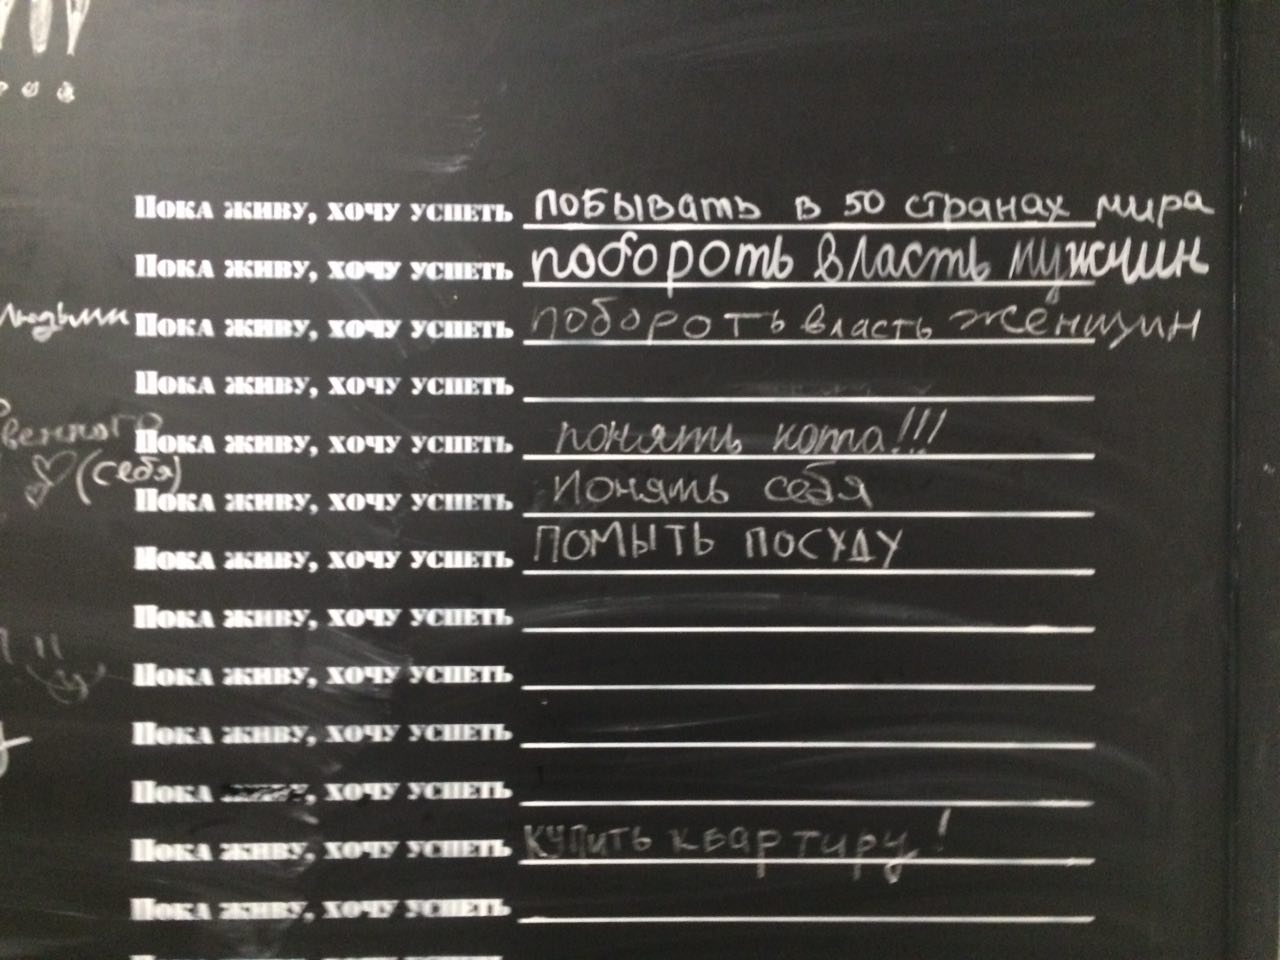 Пока живу, хочу успеть побывать в 50 странах мира
Пока живу, хочу успеть побороть власть мужчин
людьми Пока живу, хочу успеть побороть власть женщин
Пока живу, хочу успеть
Пока живу, хочу успеть понять кота!!!
(себя)
Пока живу, хочу успеть Понять себя
Пока живу, хочу успеть помыть посуду
Пока живу, хочу успеть
Пока живу, хочу успеть
Пока живу, хочу успеть
Пока , хочу успеть
Пока живу, хочу успеть купить квартиру!
Пока живу, хочу успеть